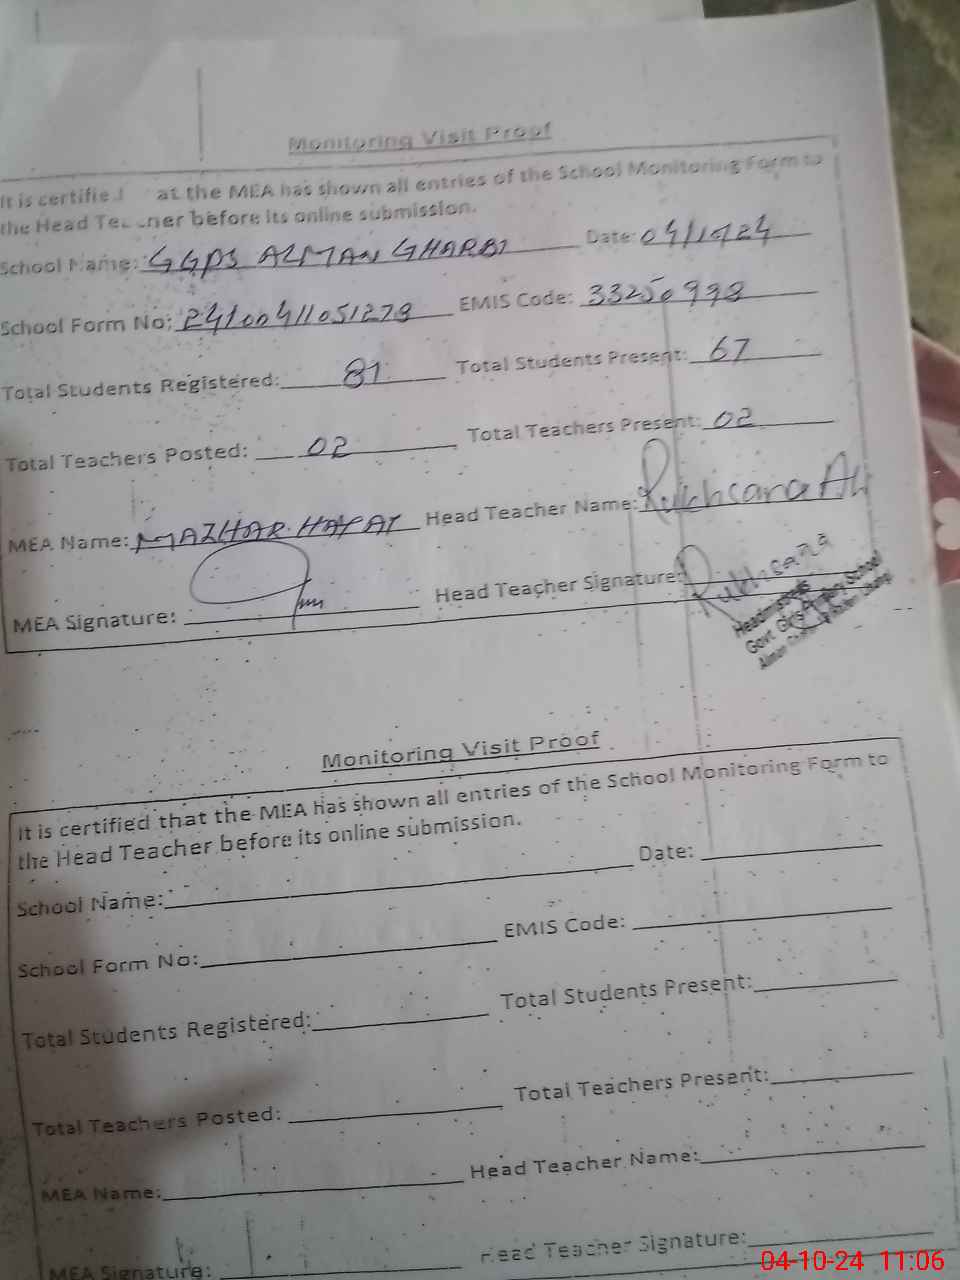 Monitoring Visit Proof
It is certified at the MEA has shown all entries of the School Monitoring Form to
the Head Teacher before its online submission.
School Name: GGPS ALMAN GHARBI Date: 04/10/24
School Form No: 24100411051278 EMIS Code: 33250998
Total Students Registered: 81 Total Students Present: 67
Total Teachers Posted: 02 Total Teachers Present: 02
MEA Name: MAZHAR HAYAT Head Teacher Name: Rukhsana
MEA Signature: Head Teacher Signature: Rukhsana
Headmistress
Govt. Girls Primary School
Monitoring Visit Proof
It is certified that the MEA has shown all entries of the School Monitoring Form to
the Head Teacher before its online submission.
School Name: Date:
School Form No: EMIS Code:
Total Students Registered: Total Students Present:
Total Teachers Posted: Total Teachers Present:
MEA Name: Head Teacher Name:
MEA Signature: Head Teacher Signature:
04-10-24 11:06